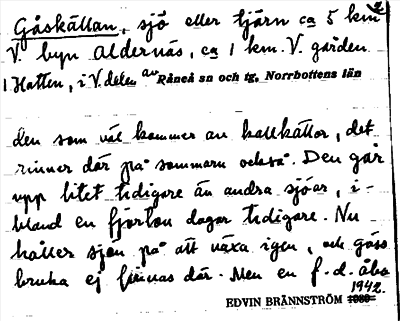 2
Gåskällan, sjö eller tjärn ca 5 km
V. byn Aldernäs, ca 1 km. V. gården
1 Hatten, i V. delen av Råneå sn och tg, Norrbottens län
den som väl kommer av kallkällor, det
rinner där på sommarn också. Den går
upp litet tidigare än andra sjöar, i-
bland en fjorton dagar tidigare. Nu
håller sjön på att växa igen, och gäss
bruka ej finnas där. Men en f.d. åbo
1942.
EDVIN BRÄNNSTRÖM